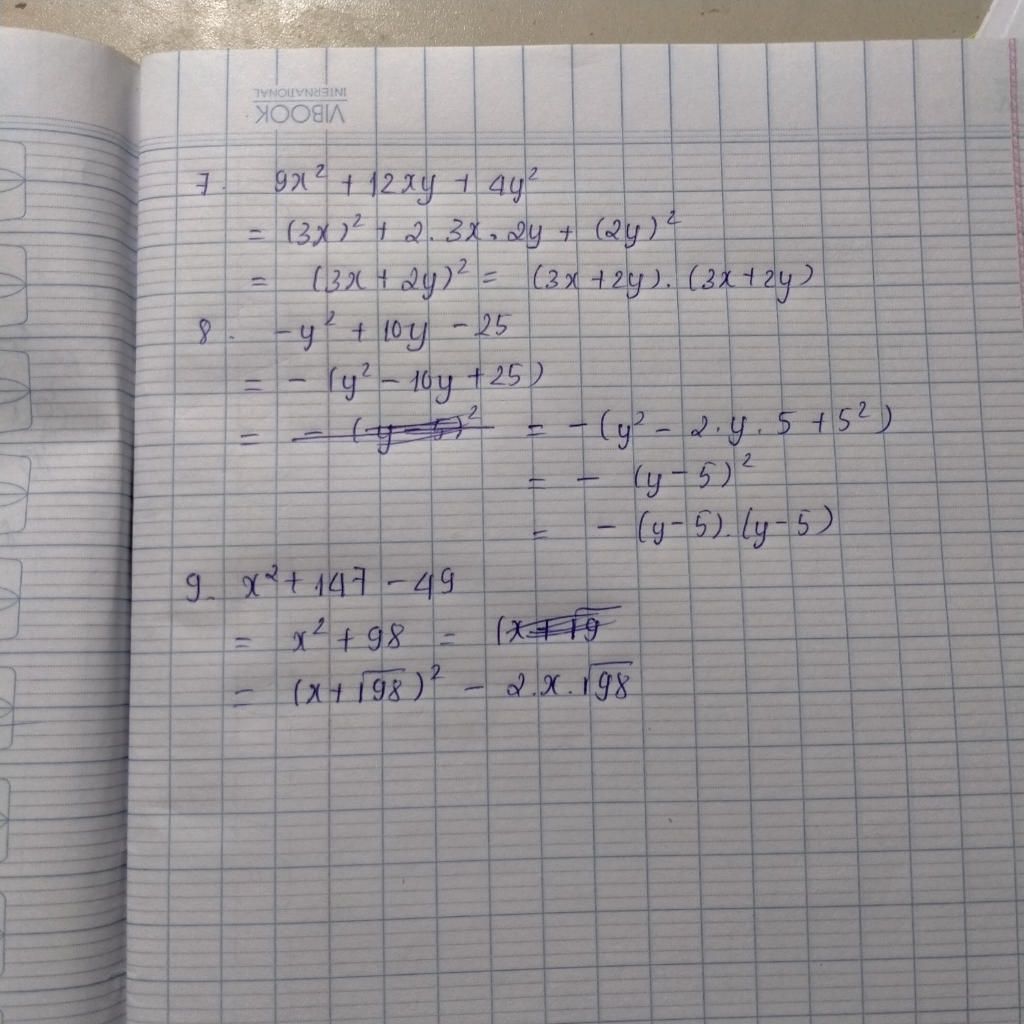 VIBOOK
INTERNATIONAL
7. 9x² + 12xy + 4y²
= (3x)² + 2.3x.2y + (2y)²
= (3x + 2y)² = (3x + 2y).(3x + 2y)
8. -y² + 10y - 25
= - (y² - 10y + 25)
= - (y - 5)² = -(y² - 2.y.5 + 5²)
= - (y - 5)²
= - (y - 5).(y - 5)
9. x² + 147 - 49
= x² + 98 =
= (x + √98)² - 2.x.√98